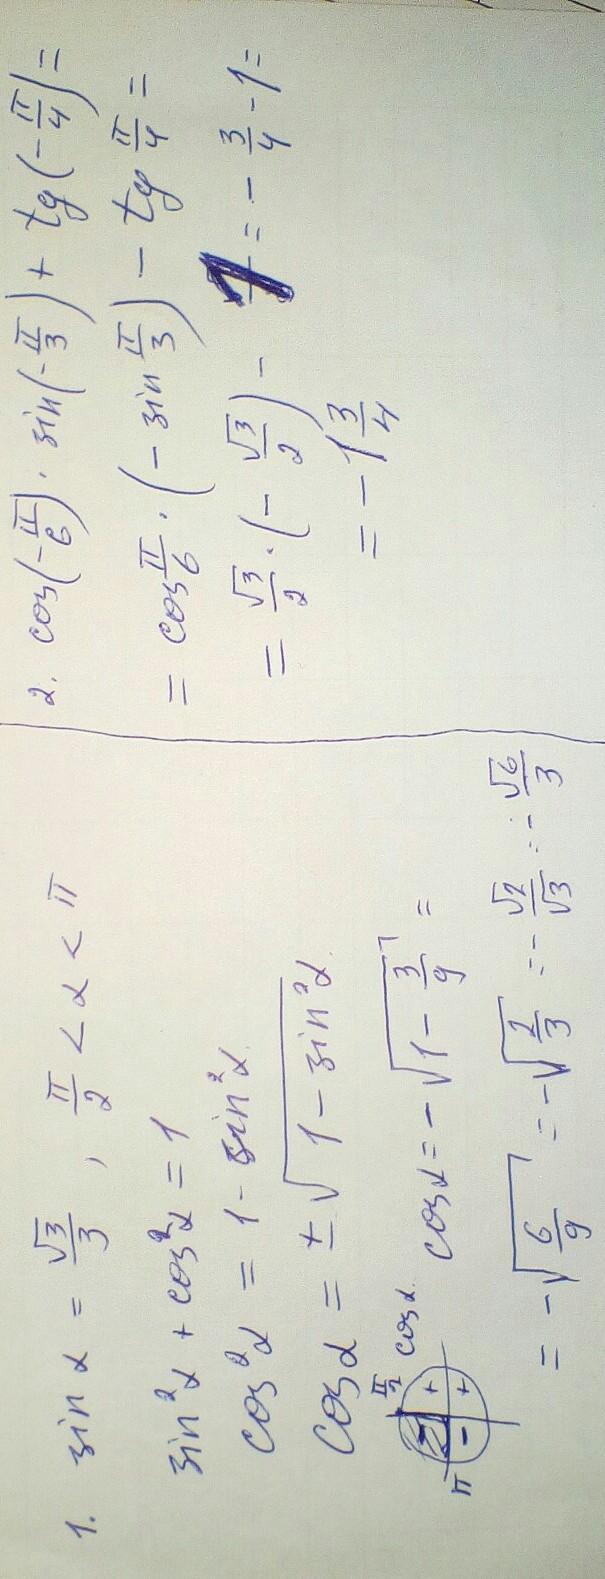 1. sin α = √3/3 , π/2 < α < π
sin²α + cos²α = 1
cos²α = 1 - sin²α
cos α = ± √(1 - sin²α)
π/2 cos α
π - + +
cos α = - √(1 - 3/9) =
= - √(6/9) = - √(2/3) = - √2/√3 = - √6/3
2. cos(-π/6) · sin(-π/3) + tg(-π/4) =
= cos π/6 · (- sin π/3) - tg π/4 =
= √3/2 · (- √3/2) - 1 = - 3/4 - 1 =
= - 1 3/4